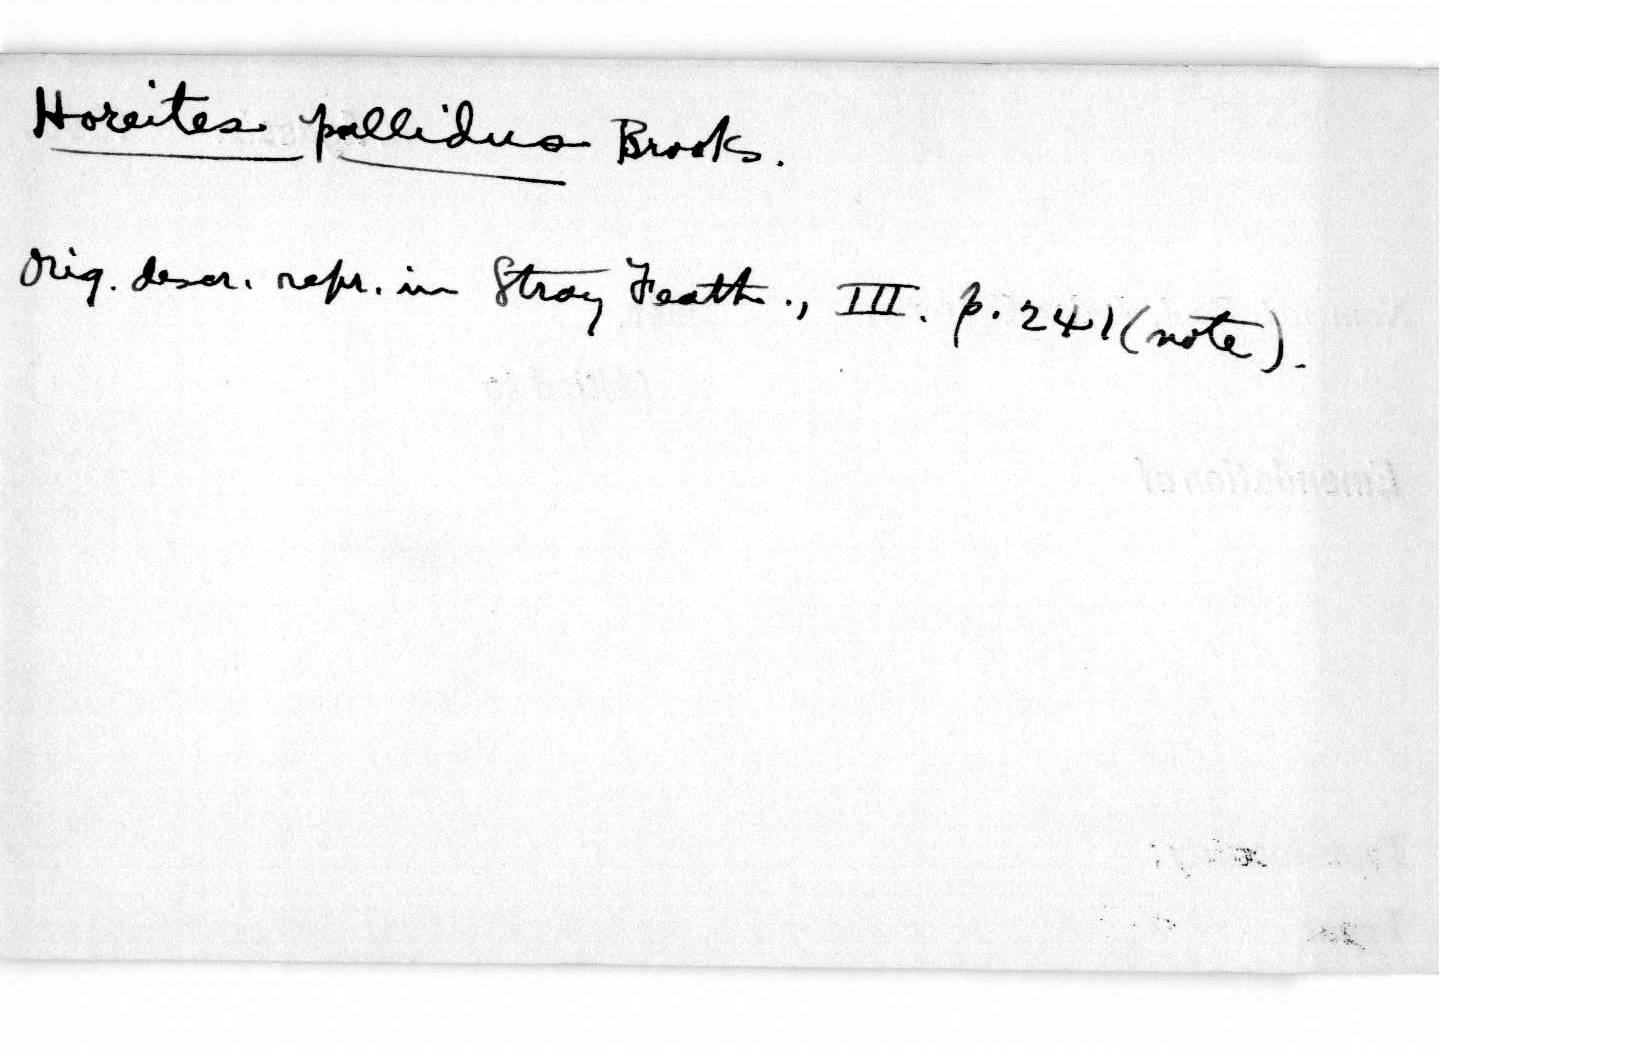 Horeites pallidus Brooks.
Orig. descr. repr. in Stray Feath., III. p. 241 (note).